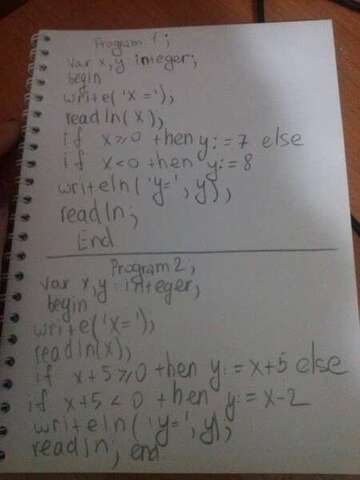 Program 1;
var x, y integer;
begin
write('x=');
readln(x);
if x≥0 then y:=7 else
if x<0 then y:=8
writeln('y=', y);
readln;
End
Program 2;
var x,y: integer;
begin
write('x=');
readln(x);
if x+5≥0 then y:=x+5 else
if x+5<0 then y:=x-2
writeln('y=', y);
readln; end